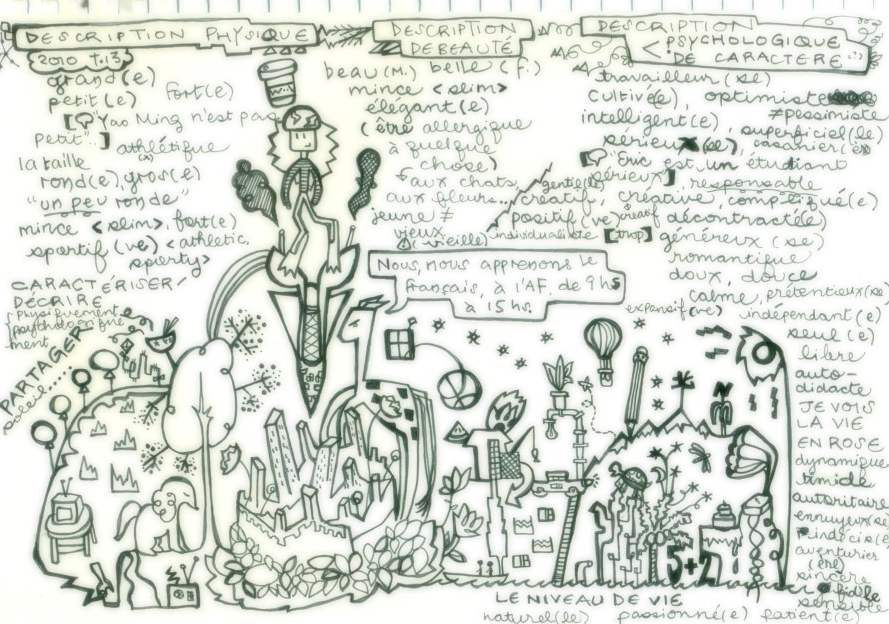 DESCRIPTION PHYSIQUE
2010 t.13
grand(e)
petit(e) fort(e)
["Yao Ming n'est pas
petit".]
athlétique
la taille
rond(e), gros(e)
"un peu ronde"
mince <slim>, fort(e)
sportif (ve) <athletic,
sporty>
CARACTÉRISER/
DÉCRIRE
physiquement
psychologique
ment
PARTAGER
DESCRIPTION
DE BEAUTÉ
beau (M.) belle (f.)
mince <slim>
élégant(e)
(être allergique
à quelque
chose)
aux chats
aux fleurs...
jeune ≠
vieux
(vieille)
Nous, nous apprenons le
français, à l'AF. de 9 hs
à 15 hs.
DESCRIPTION
PSYCHOLOGIQUE
DE CARACTÈRE
travailleur (se)
cultivé(e), optimiste
≠pessimiste
intelligent(e)
superficiel(le)
sérieux (se), casanier (ère)
[Eric est un étudiant
sérieux] responsable
gentil(le)
créatif, créative, compliqué(e)
positif (ve) créatif décontracté(e)
individualiste [trop] généreux (se)
romantique
doux, douce
calme, prétentieux(se)
expansif(ve) indépendant(e)
seul (e)
libre
auto-
didacte
JE VOIS
LA VIE
EN ROSE
dynamique
timide
autoritaire
ennuyeux(se)
aventurier
(ère)
sincère
fidèle
sensible
5+2
LE NIVEAU DE VIE
naturel(le) passionné(e) patient(e)